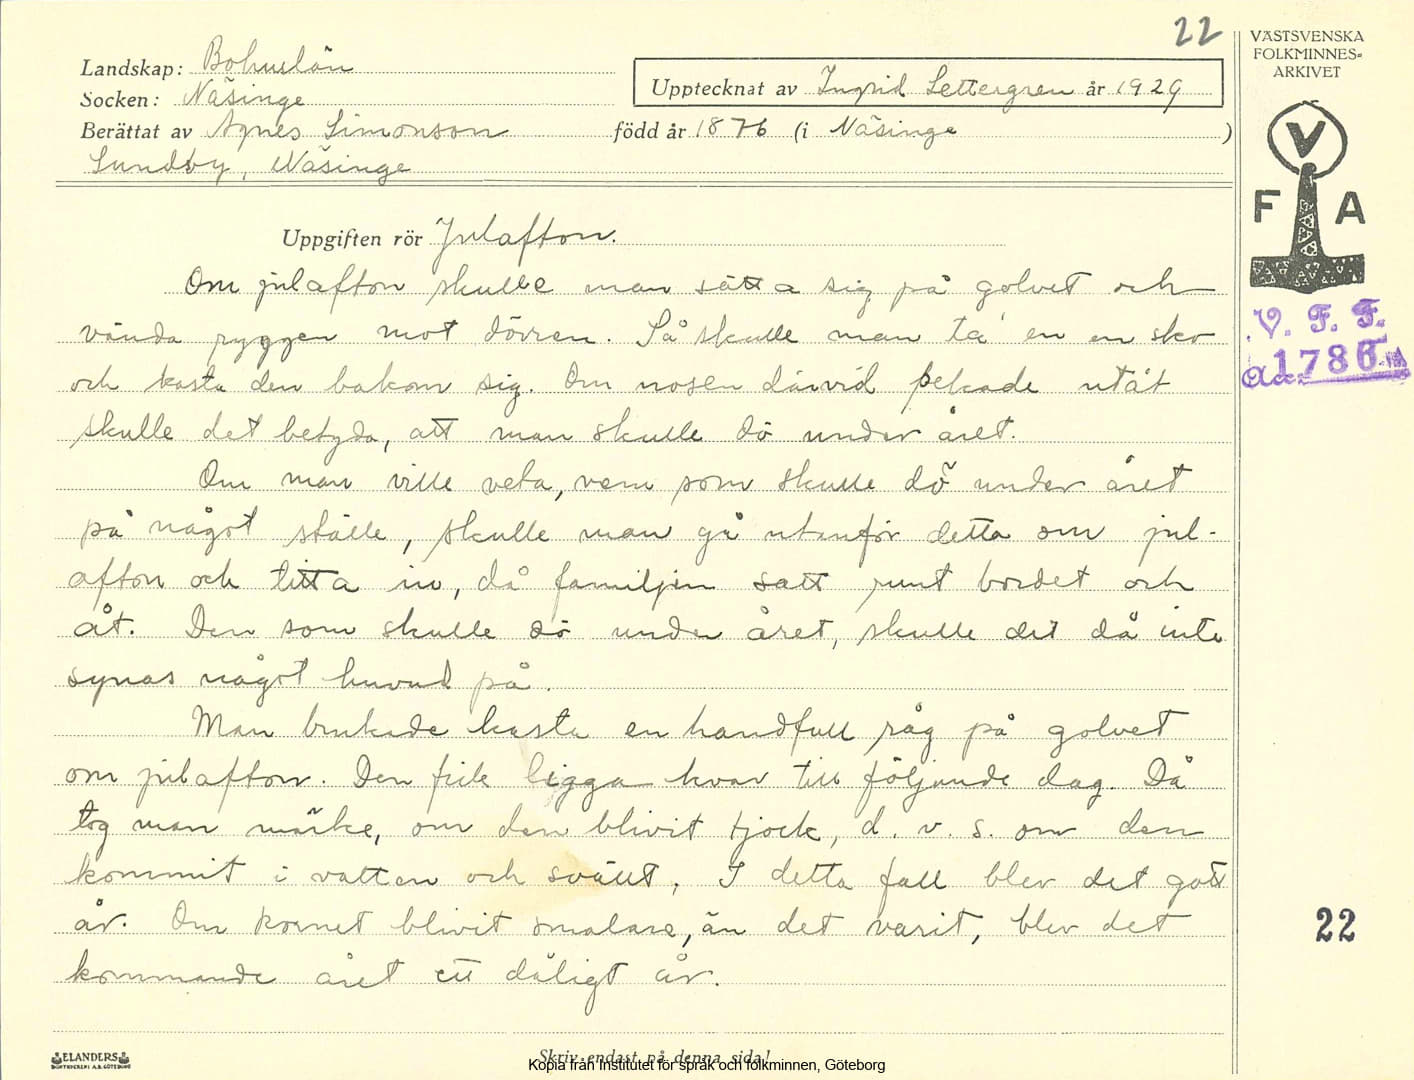 22
Landskap: Bohuslän
Socken: Näsinge
Upptecknat av Ingrid Settergren år 1929
Berättat av Agnes Simonson född år 1876 (i Näsinge )
Sundby, Näsinge
Uppgiften rör Julafton.
Om julafton skulle man sätta sig på golvet och
vända ryggen mot dörren. Så skulle man ta en en sko
och kasta den bakom sig. Om nosen därvid pekade utåt
skulle det betyda, att man skulle dö under året.
Om man ville veta, vem som skulle dö under året
på något ställe, skulle man gå utanför detta om jul-
afton och titta in, då familjen satt runt bordet och
åt. Den som skulle dö under året, skulle det då inte
synas något huvud på.
Man brukade kasta en handfull råg på golvet
om julafton. Den fick ligga kvar till följande dag. Då
tog man märke, om den blivit tjock, d. v. s. om den
kommit i vatten och svällt. I detta fall blev det gott
år. Om kornet blivit smalare, än det varit, blev det
kommande året ett dåligt år.
Skriv endast på denna sida!
Kopia från Institutet för språk och folkminnen, Göteborg
ELANDERS
BOKTRYCKERI A.B. GÖTEBORG
VÄSTSVENSKA
FOLKMINNES-
ARKIVET
V
F A
V. F. F.
1786
22